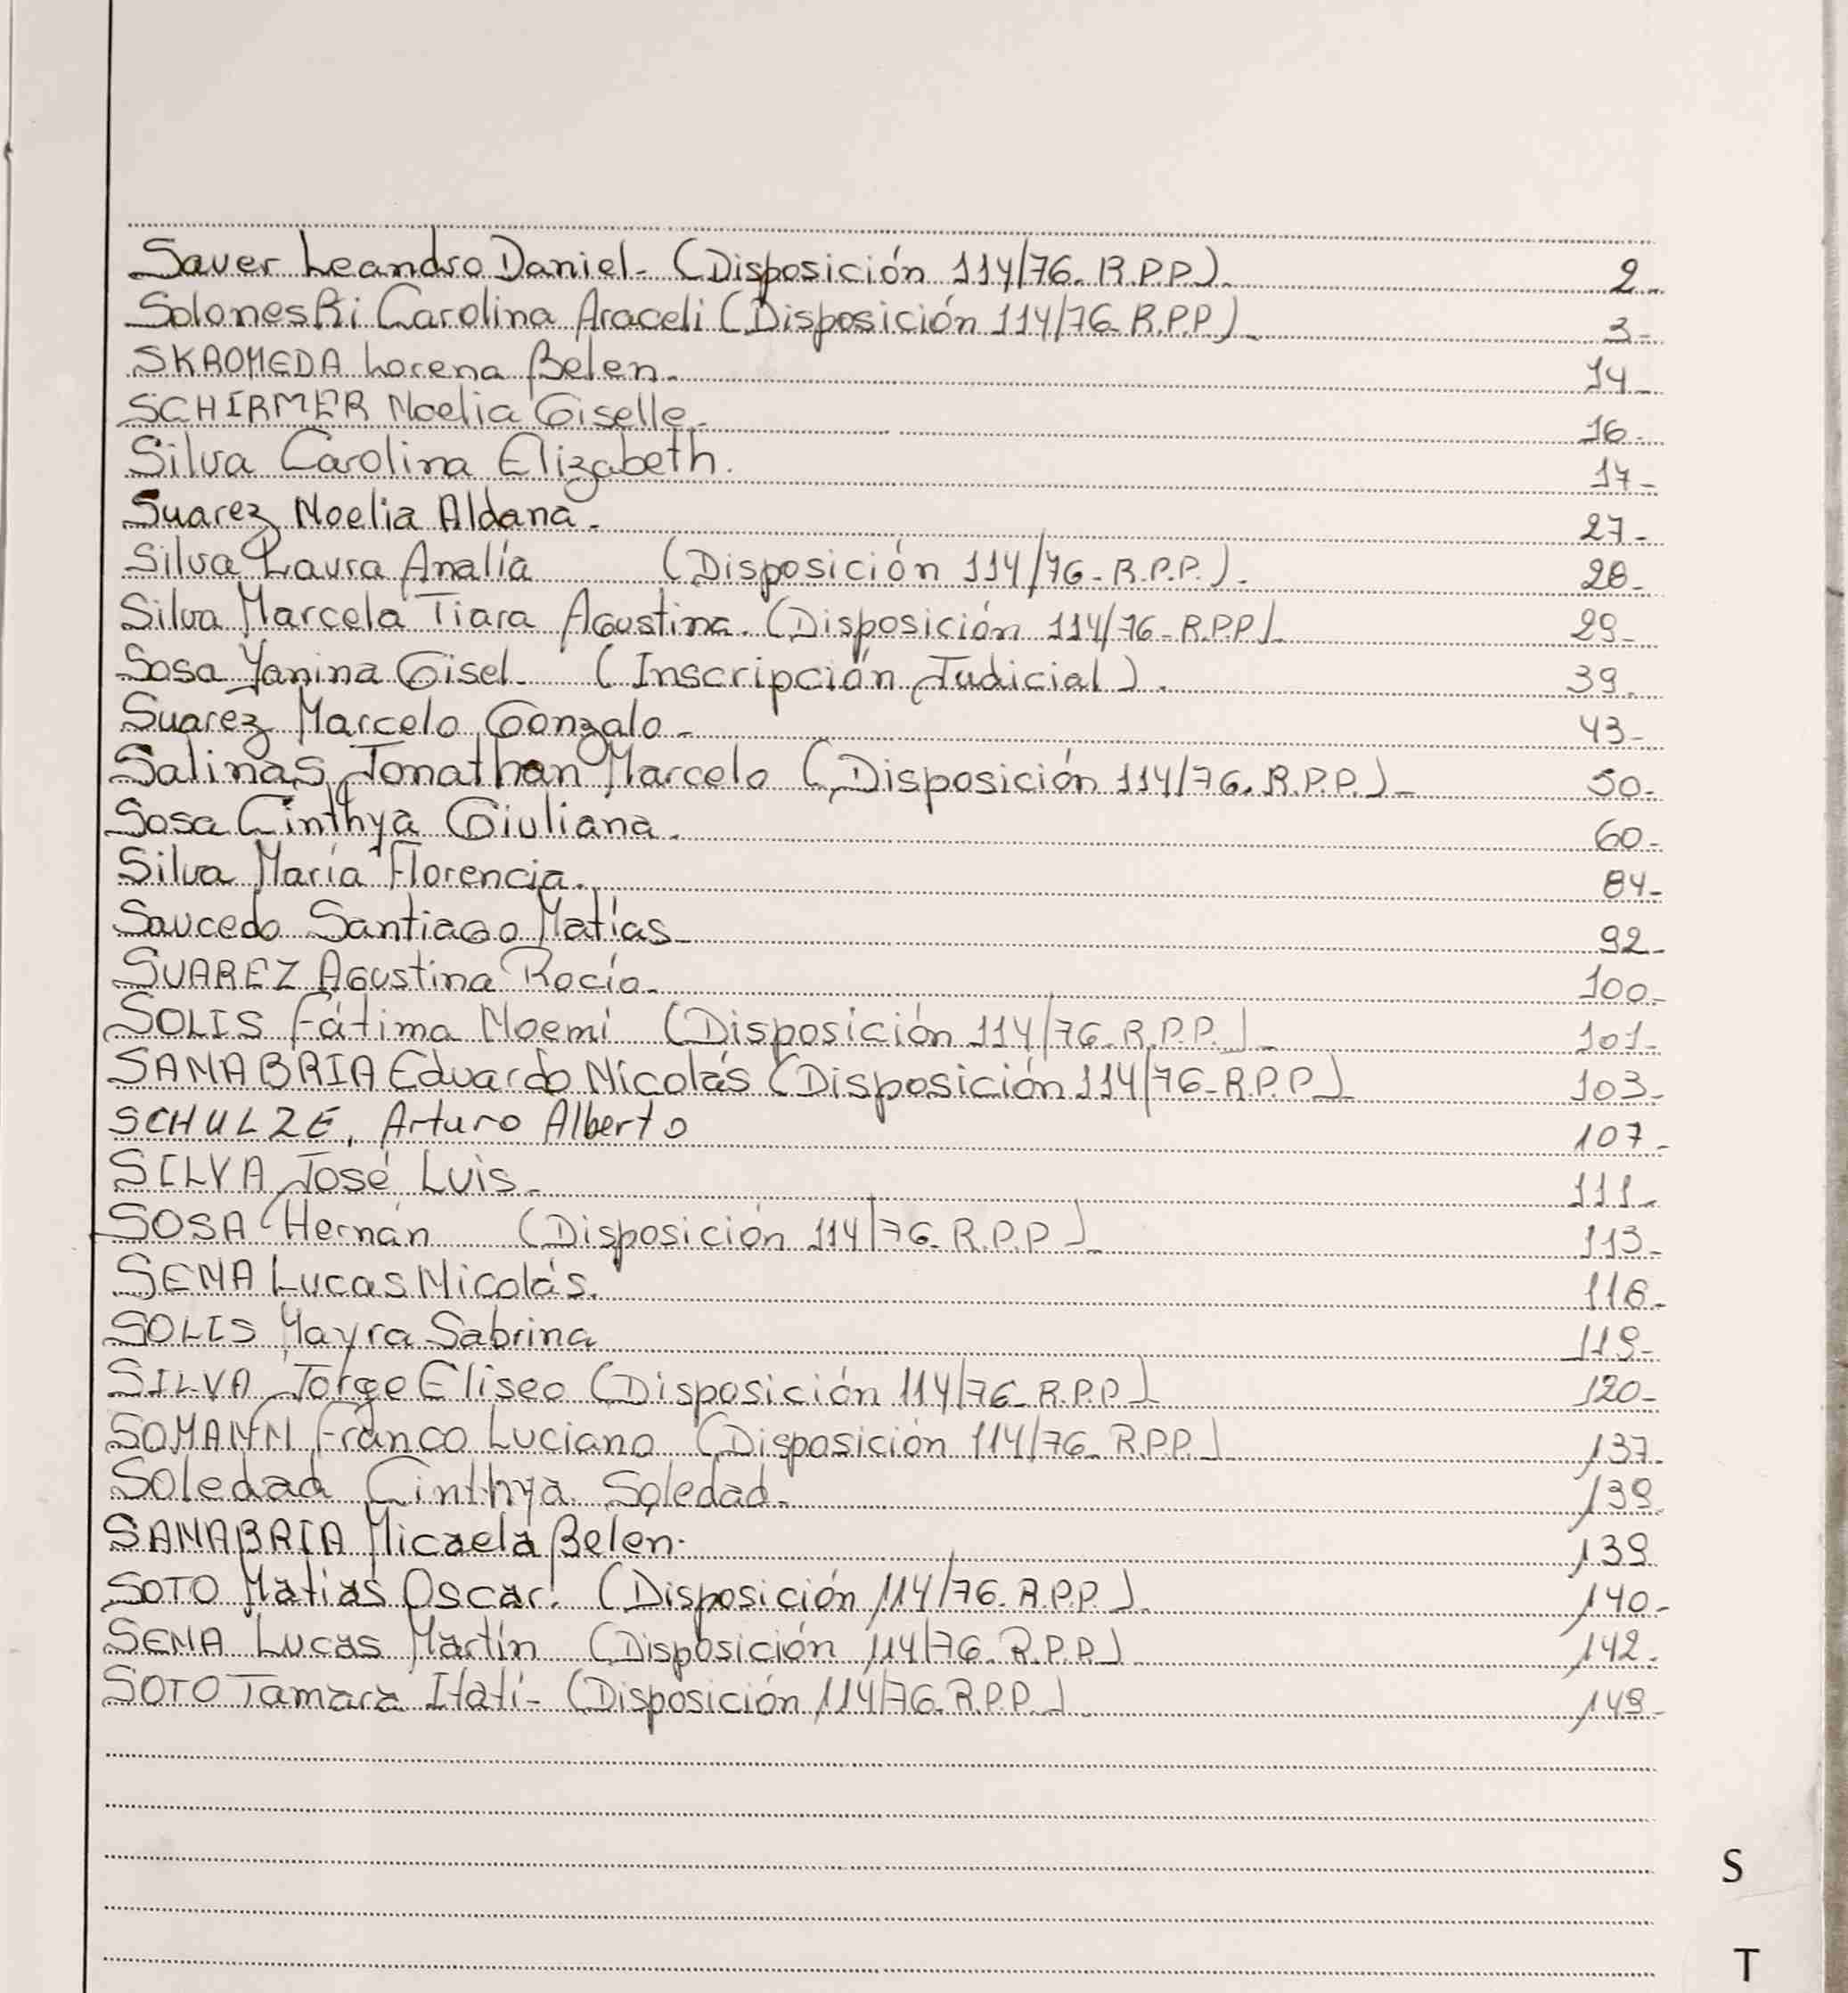 Sauer Leandro Daniel- (Disposición 114/76. R.P.P.). 2-
Soloneski Carolina Araceli (Disposición 114/76. R.P.P)- 3-
SKROMEDA Lorena Belen- 14-
SCHIRMER Noelia Giselle- 16-
Silva Carolina Elizabeth. 17-
Suarez Noelia Aldana- 27-
Silva Laura Analía (Disposición 114/76- R.P.P.)- 28-
Silva Marcela Tiara Agostina. (Disposición 114/76- R.P.P)- 29-
Sosa Yanina Gisel- (Inscripción Judicial). 39.
Suarez Marcelo Gonzalo- 43-
Salinas Jonathan Marcelo (Disposición 114/76. R.P.P.)- 50-
Sosa Cinthya Giuliana. 60-
Silva María Florencia. 84-
Saucedo Santiago Matías- 92-
SUAREZ Agustina Rocío- 100-
SOLIS Fátima Noemí (Disposición 114/76. R.P.P.)- 101-
SANABRIA Eduardo Nicolás (Disposición 114/76- R.P.P)- 103-
SCHULZE, Arturo Alberto 107-
SILVA José Luis- 111-
SOSA Hernán (Disposición 114/76- R.P.P)- 113-
SENA Lucas Nicolás. 116-
SOLIS Mayra Sabrina 119-
SILVA Jorge Eliseo (Disposición 114/76- R.P.P) 120-
SOMANN Franco Luciano (Disposición 114/76- R.P.P.) 137-
Soledad Cinthya Soledad- 139.
SANABRIA Micaela Belen. 139
SOTO Matias Oscar. (Disposición 114/76. R.P.P.). 140-
SENA Lucas Martín (Disposición 114/76. R.P.P) 142-
SOTO Tamara Itatí- (Disposición 114/76. R.P.P.)- 149-
S
T